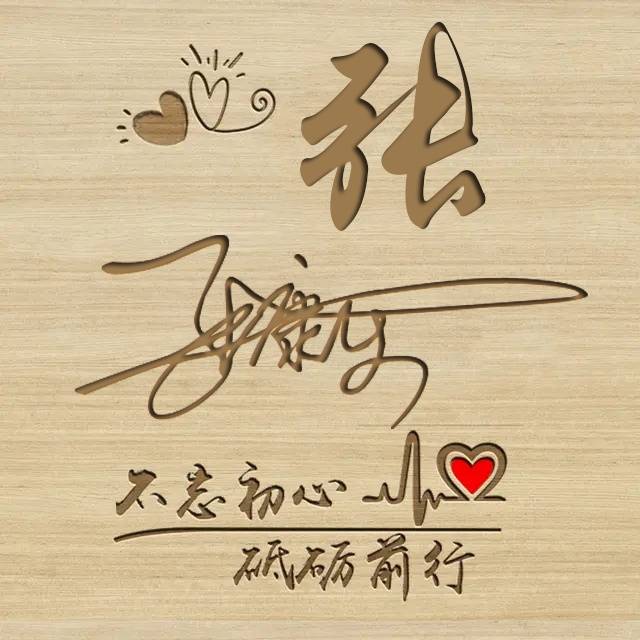 张
不忘初心
砥砺前行